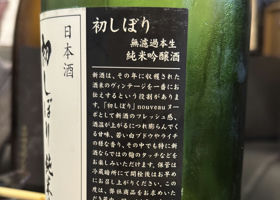 日本酒
初しぼり 純米
初しぼり
無濾過本生
純米吟醸酒
新酒は、その年に収穫された
酒米のヴィンテージを一番にお
伝えするという役割がありま
す。「初しぼり」nouveau ヌーボ
ーとして新酒のフレッシュ感、
酒温が上がるにつれ膨らんでく
る旨味、若い白ブドウやライチ
の様な香り、その中でも特に新
酒ならではの麹のタッチなどを
お楽しみいただけます。保管は
冷蔵暗所にて開栓後はお早め
にお召し上がりください。この
度は、弊社商品をお求めいた